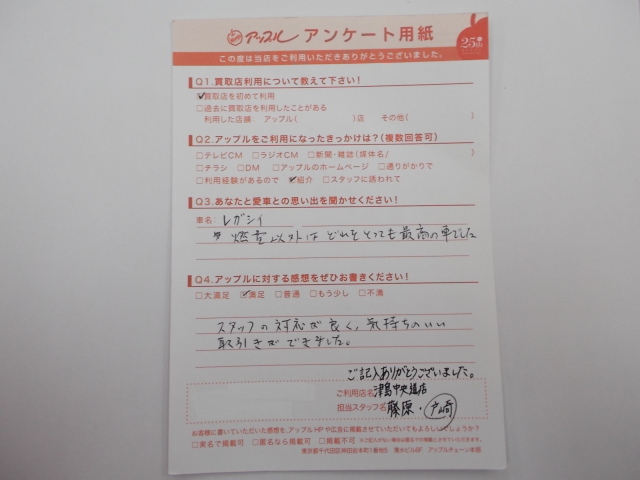 アップル アンケート用紙
25th
この度は当店をご利用いただきありがとうございました。
Q1.買取店利用について教えて下さい!
☑買取店を初めて利用
□過去に買取店を利用したことがある
利用した店舗: アップル( )店 その他( )
Q2.アップルをご利用になったきっかけは?(複数回答可)
□テレビCM □ラジオCM □新聞・雑誌(媒体名/ )
□チラシ □DM □アップルのホームページ □通りがかりで
□利用経験があるので ☑紹介 □スタッフに誘われて
Q3.あなたと愛車との思い出を聞かせください!
車名: レガシィ
燃費以外はどれをとっても最高の車でした
Q4.アップルに対する感想をぜひお書きください!
□大満足 ☑満足 □普通 □もう少し □不満
スタッフの対応が良く、気持ちのいい
取引きができました。
ご記入ありがとうございました。
ご利用店名 津島中央道店
担当スタッフ名 藤原・戸崎
お客様に書いていただいた感想を、アップルHPや広告に掲載させていただいてもよろしいでしょうか?
□実名で掲載可 □匿名なら掲載可 □掲載不可 ※ご記入がない場合は匿名での掲載とさせていただきます。
東京都千代田区神田岩本町1番地5 清水ビル6F アップルチェーン本部